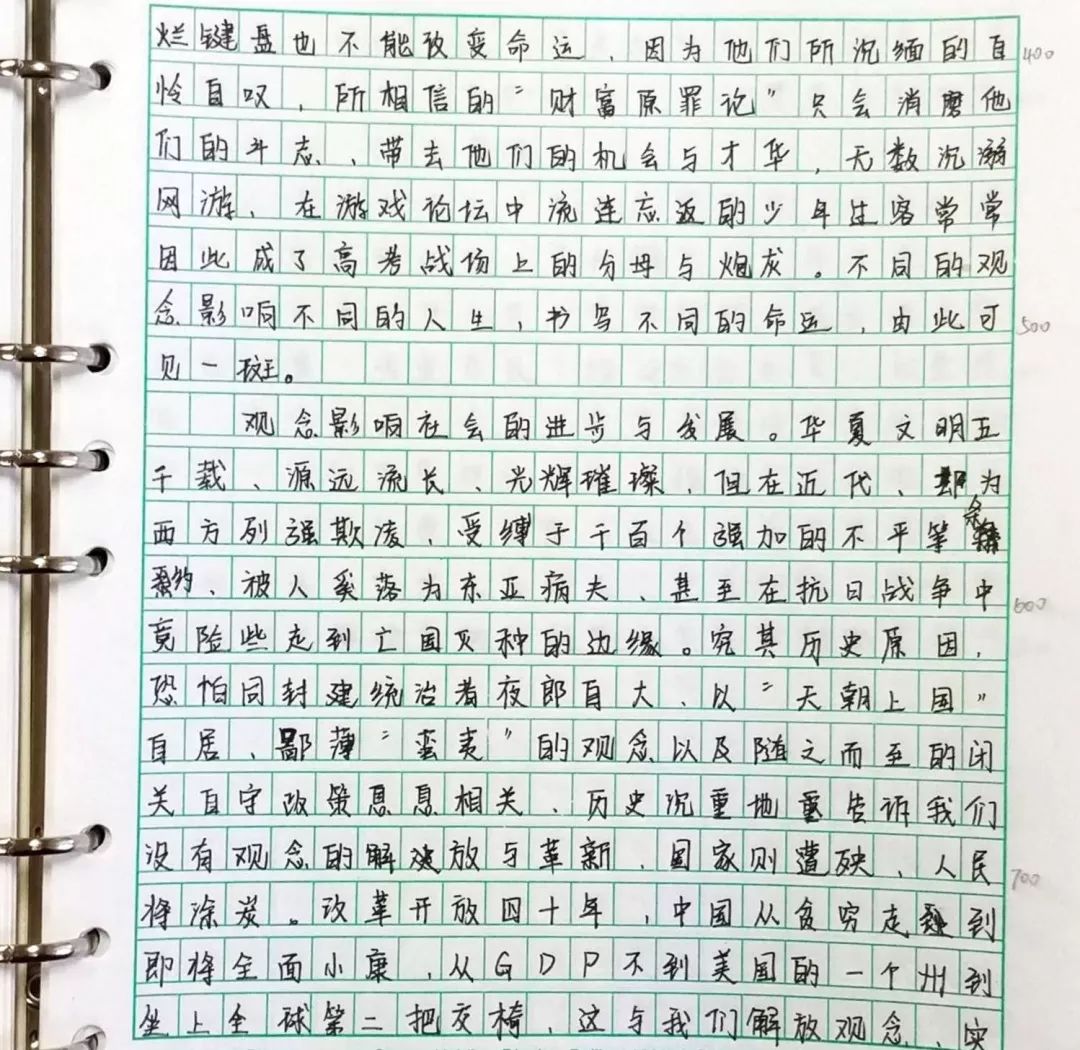 烂键盘也不能改变命运，因为他们所沉缅的自
400
怜自叹，所相信的“财富原罪论”只会消磨他
们的斗志、带去他们的机会与才华，无数沉溺
网游、在游戏论坛中流连忘返的少年过客常常
因此成了高考战场上的分母与炮灰。不同的观
念影响不同的人生，书写不同的命运，由此可
500
见一斑。
观念影响社会的进步与发展。华夏文明五
千载、源远流长、光辉璀璨，但在近代、却为
西方列强欺凌，受缚于千百个强加的不平等条
约、被人奚落为东亚病夫、甚至在抗日战争中
600
竟险些走到亡国灭种的边缘。究其历史原因，
恐怕同封建统治着夜郎自大、以“天朝上国”
自居、鄙薄“蛮夷”的观念以及随之而至的闭
关自守政策息息相关、历史沉重地告诉我们
没有观念的解放与革新，国家则遭殃、人民
700
将涂炭。改革开放四十年，中国从贫穷走到
即将全面小康，从GDP不到美国的一个州到
坐上全球第二把交椅，这与我们解放观念、实